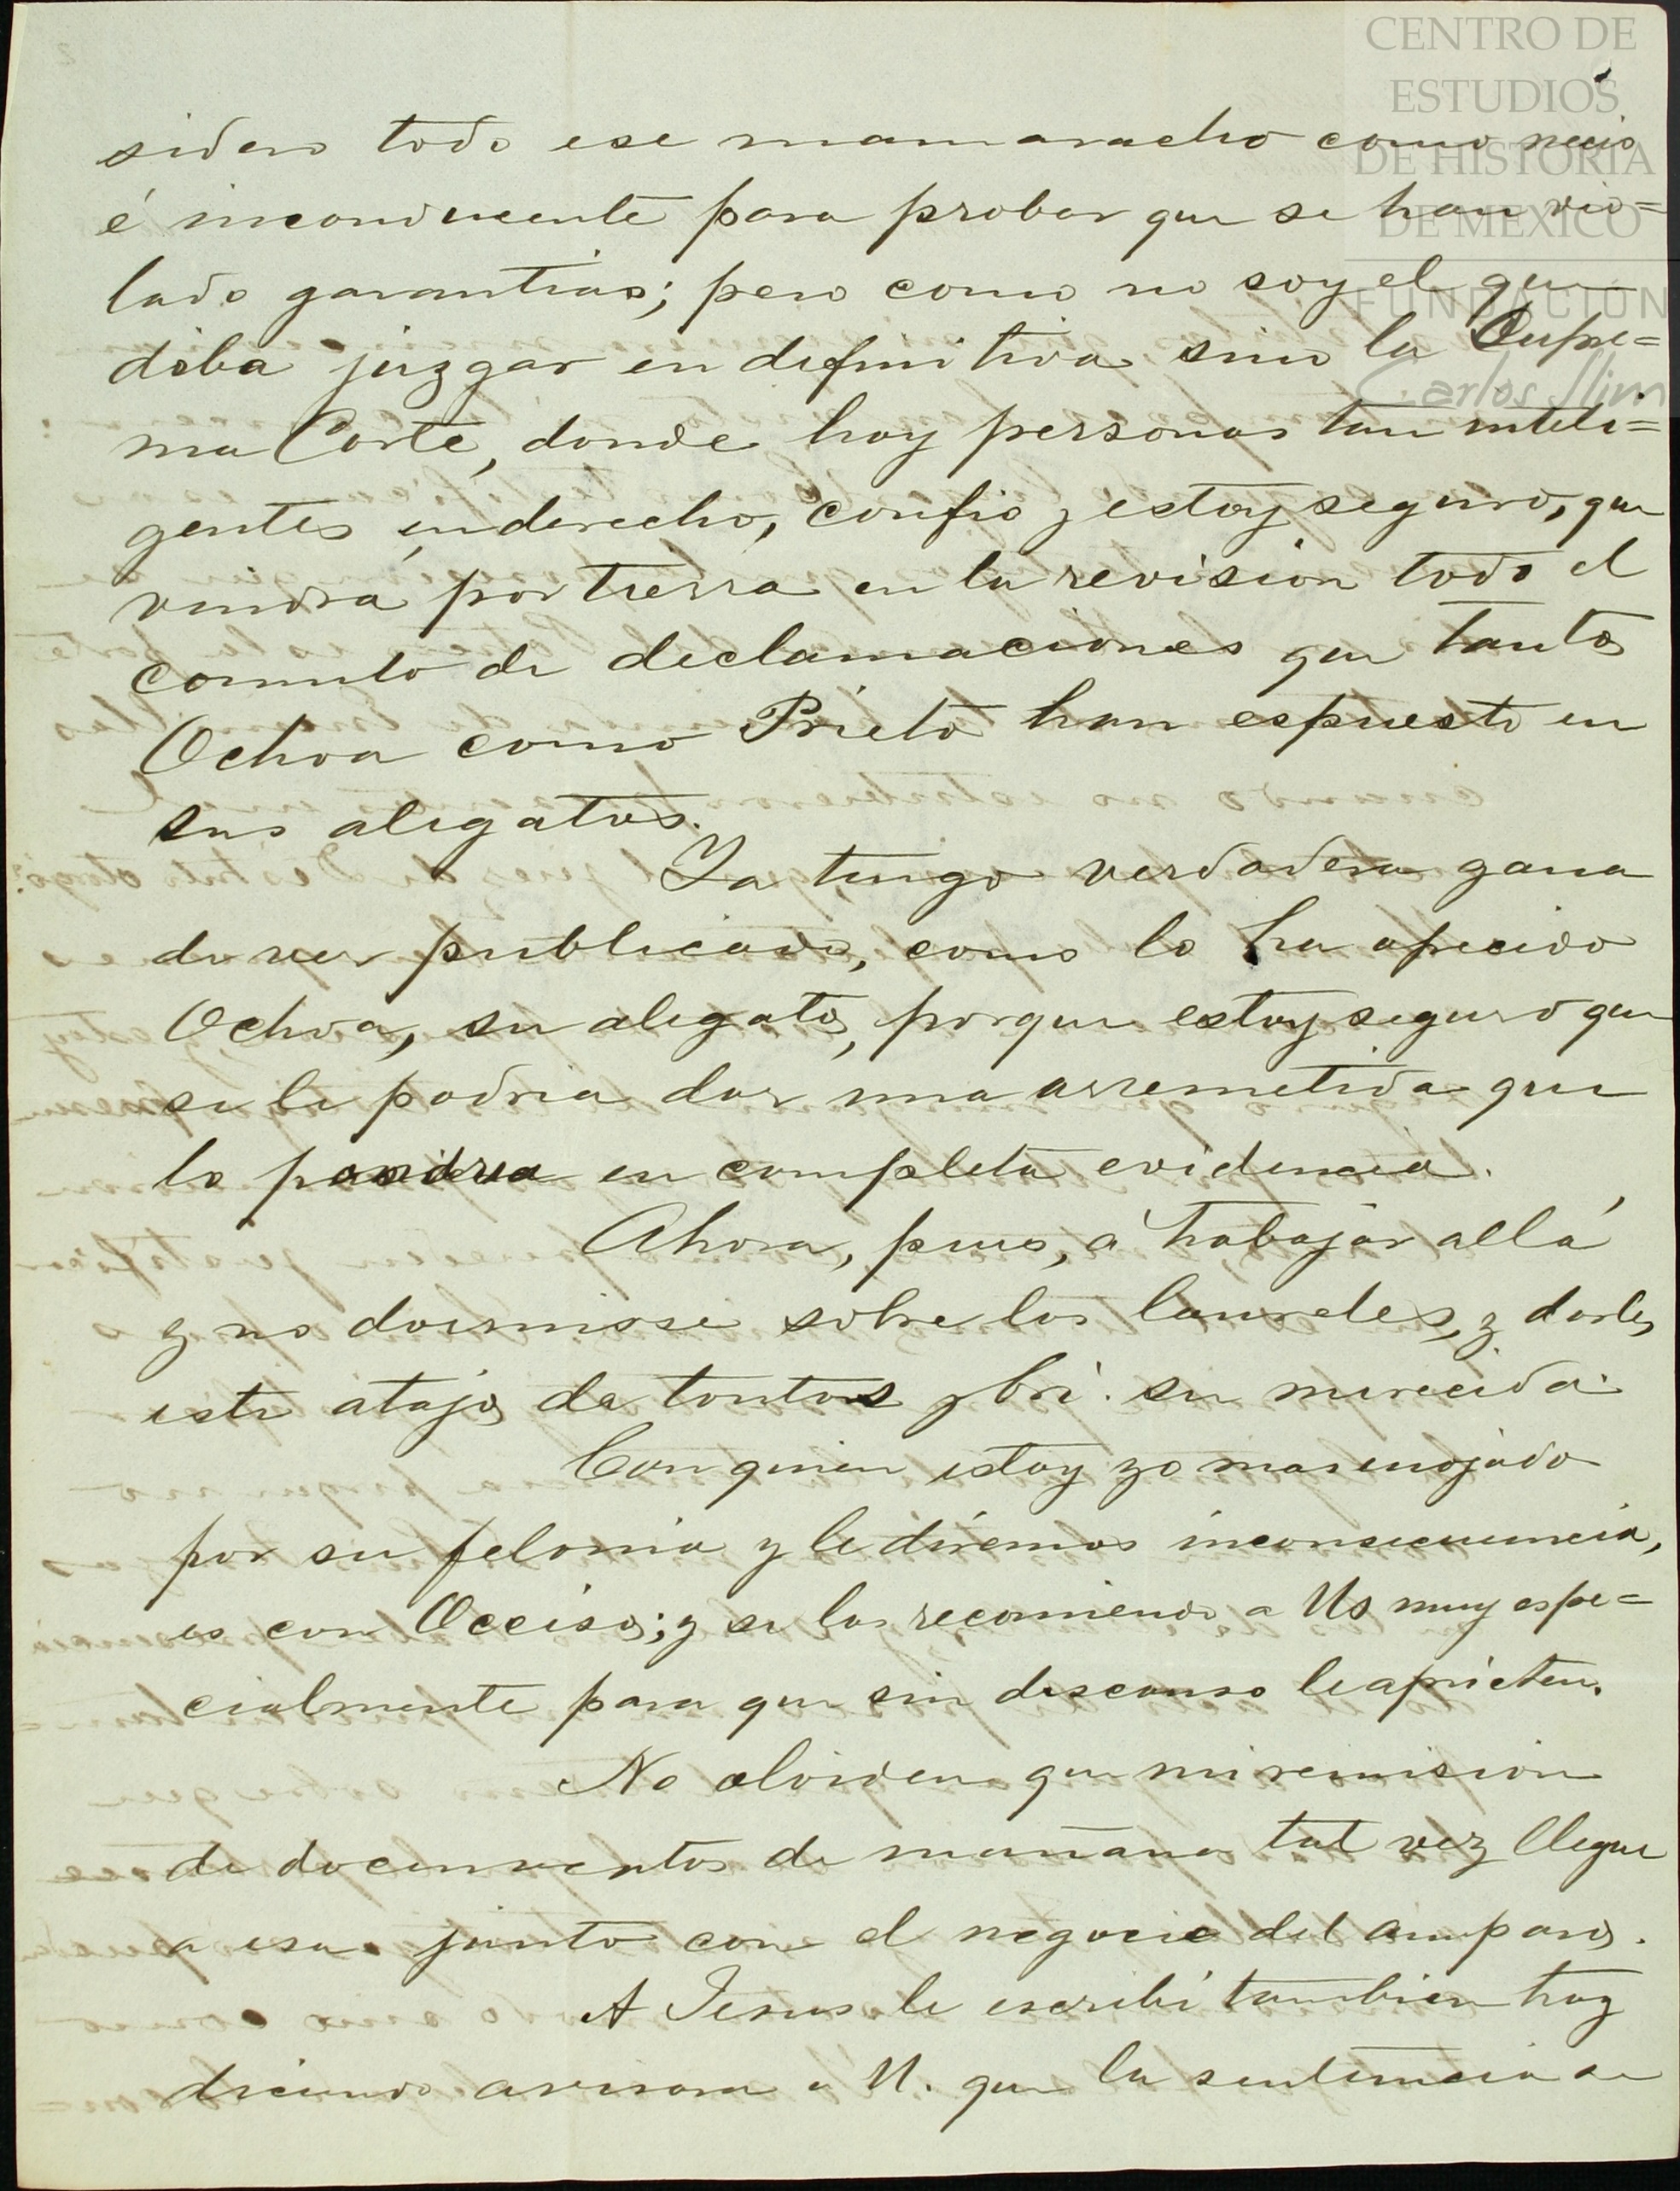 CENTRO DE
ESTUDIOS
DE HISTORIA
DE MEXICO
FUNDACION
Carlos Slim
sidero todo ese mamaracho como necio
é inconducente para probar que se han vio=
lado garantias; pero como no soy el que
deba juzgar en definitiva sino la Supre=
ma Corte, donde hay personas tan inteli=
gentes en derecho, confio y estoy seguro, que
vendrá por tierra en la revision todo el
cumulo de declamaciones que tanto
Ochoa como Prieto han espuesto en
sus alegatos.
Ya tengo verdadera gana
de ver publicado, como lo ha ofrecido
Ochoa, su alegato, porque estoy seguro que
se le podria dar una arremetida que
lo pondria en completa evidencia.
Ahora, pues, á trabajar allá
y no dormirse sobre los laureles, y darle
este atajo de tontos y bri. su merecida.
Con quien estoy yo mas enojado
por su felonia y le diremos inconsecuencia,
es con Occiso; y se los recomiendo a Us muy espe=
cialmente para que sin descanso le aprieten.
No olviden que mi remision
de documentos de mañana tal vez llegue
a esa junto con el negocio del amparo.
A Jesus le escribi tambien hoy
diciendo avisara a U. que la sentencia se